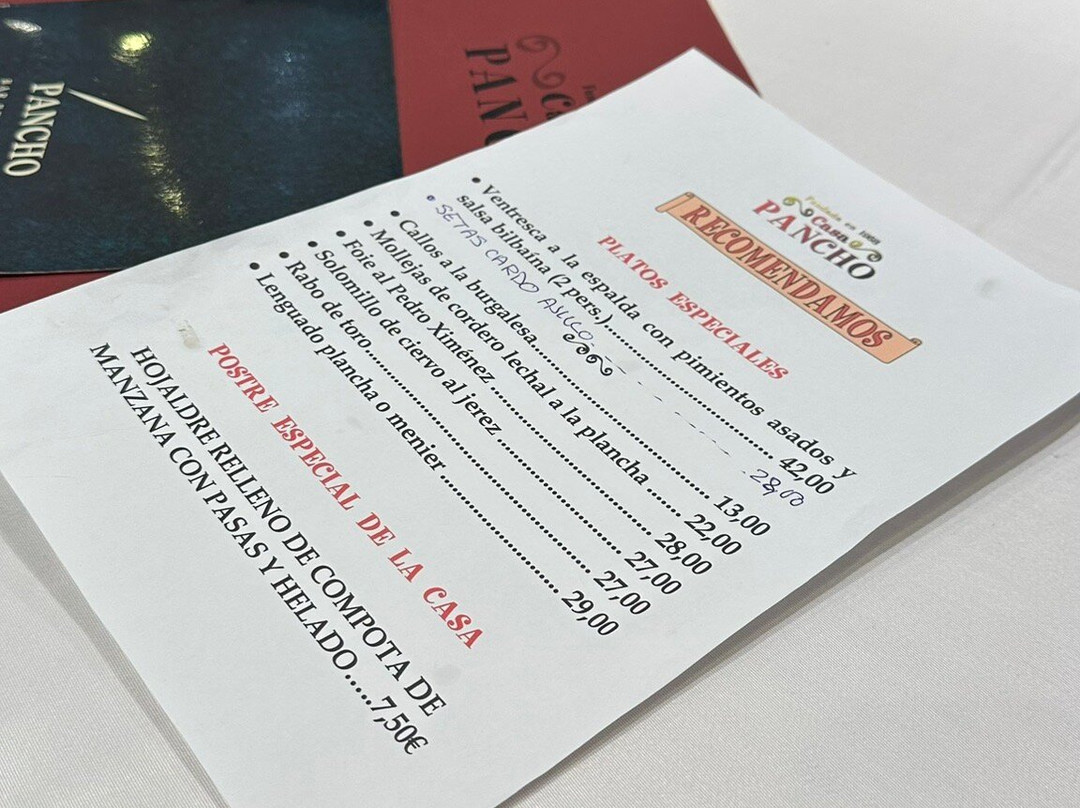 PANCHO
PANC
Fundada en 1968
Casa
PANCHO
RECOMENDAMOS
PLATOS ESPECIALES
• Ventresca a la espalda con pimientos asados y
salsa bilbaína (2 pers.)........................ 42,00
• SETAS CARDO - - - - - - - - - 28,00
• Callos a la burgalesa........................ 13,00
• Mollejas de cordero lechal a la plancha ..... 22,00
• Foie al Pedro Ximénez ........................ 28,00
• Solomillo de ciervo al jerez ................. 27,00
• Rabo de toro.................................. 27,00
• Lenguado plancha o menier .................... 29,00
POSTRE ESPECIAL DE LA CASA
HOJALDRE RELLENO DE COMPOTA DE
MANZANA CON PASAS Y HELADO.....7,50€